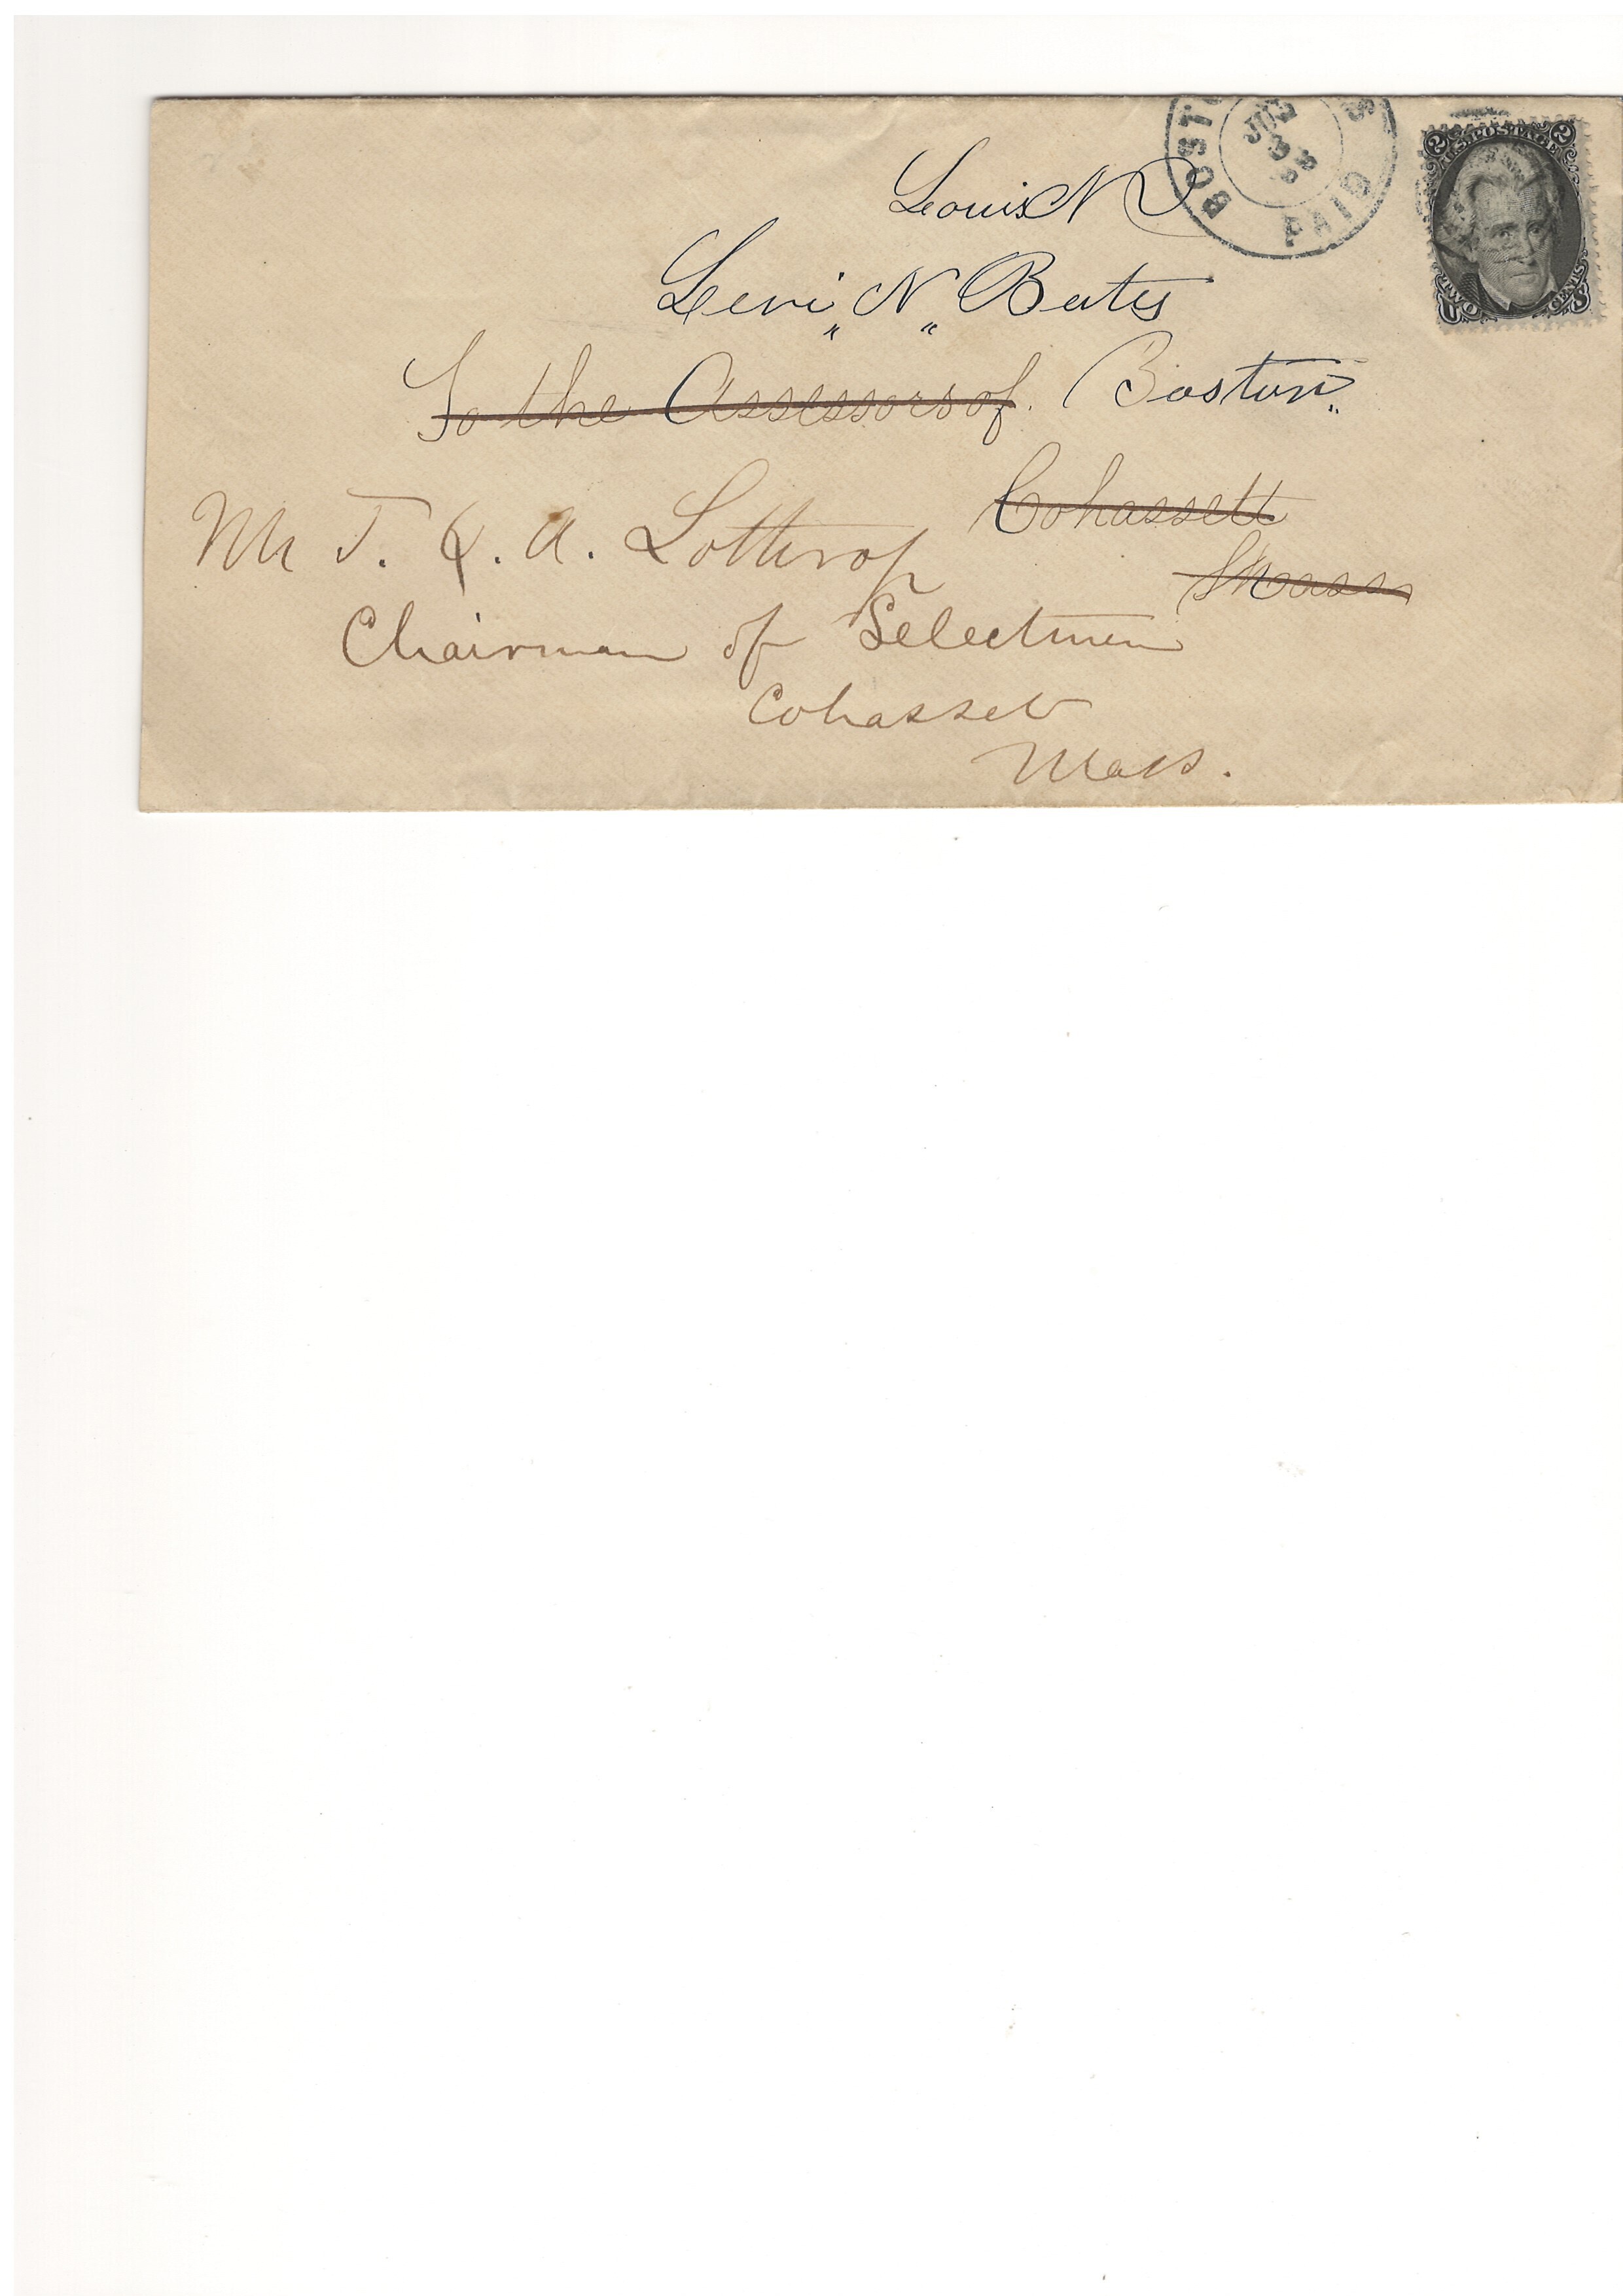 BOSTO
S
JUL
3
PAID
2 U.S. POSTAGE 2
TWO CENTS
Louis N
Levi N Bates
To the Assessors of Boston
Cohassett
Mass
Mr J. Q. A. Lothrop
Chairman of Selectmen
Cohasset
Mass.